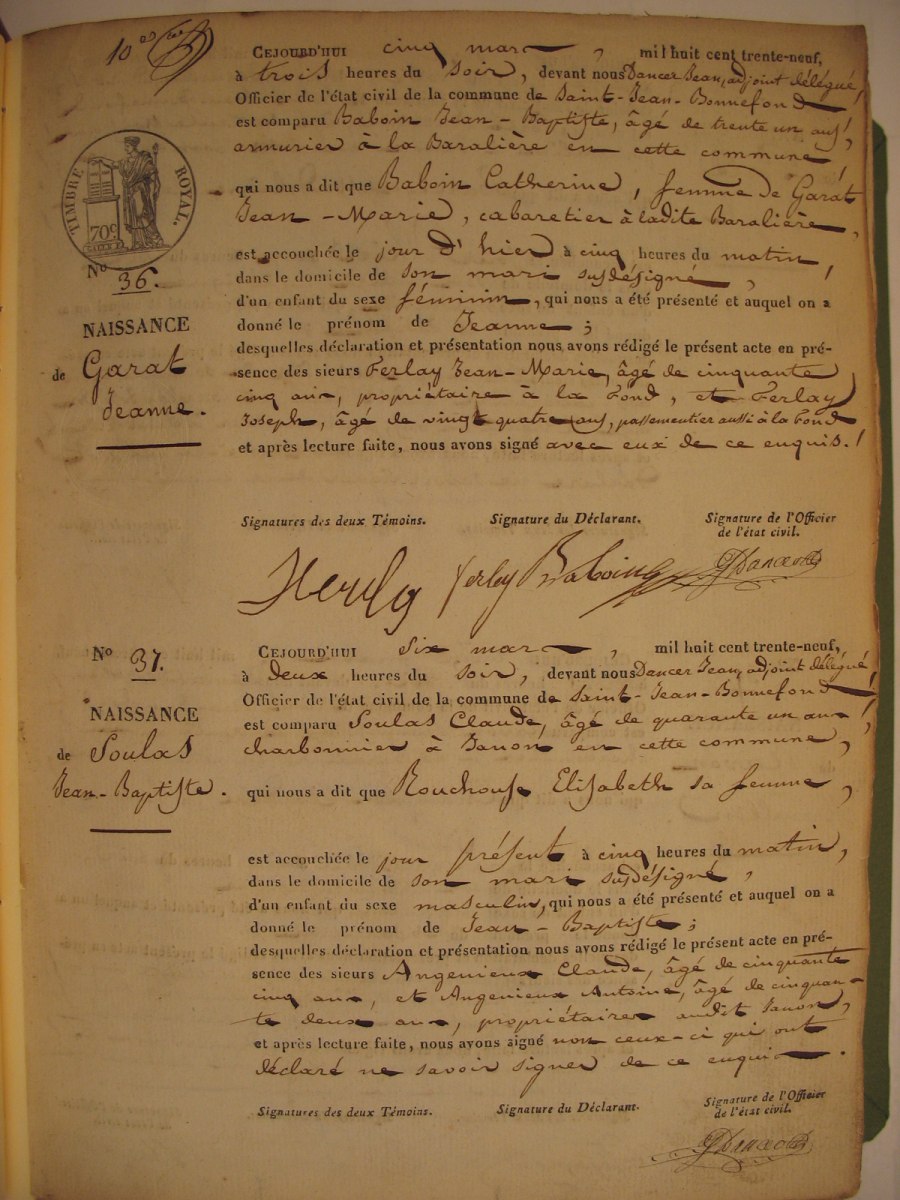 10
TIMBRE ROYAL.
70c
No 36.
NAISSANCE
de Garat
Jeanne.
CEJOURD'HUI cinq mars, mil huit cent trente-neuf,
à trois heures du soir, devant nous Dancer Jean, adjoint délégué,
Officier de l'état civil de la commune de Saint-Jean-Bonnefond
est comparu Baboin Jean-Baptiste, âgé de trente un ans,
armurier à la Baralière en cette commune
qui nous a dit que Baboin Catherine, femme de Garat
Jean-Marie, cabaretier à ladite Baralière,
est accouchée le jour d'hier à cinq heures du matin,
dans le domicile de son mari susdésigné,
d'un enfant du sexe féminin, qui nous a été présenté et auquel on a
donné le prénom de Jeanne;
desquelles déclaration et présentation nous avons rédigé le présent acte en pré-
sence des sieurs Ferlay Jean-Marie, âgé de cinquante
cinq ans, propriétaire à la Fond, et Ferlay
Joseph, âgé de vingt quatre ans, passementier aussi à la Fond
et après lecture faite, nous avons signé avec eux de ce enquis.
Signatures des deux Témoins. Signature du Déclarant. Signature de l'Officier
de l'état civil.
ferlay Baboin Dancer
No 37.
NAISSANCE
de Soulas
Jean-Baptiste.
CEJOURD'HUI six mars, mil huit cent trente-neuf,
à deux heures du soir, devant nous Dancer Jean, adjoint délégué
Officier de l'état civil de la commune de Saint-Jean-Bonnefond
est comparu Soulas Claude, âgé de quarante un ans,
charbonnier à Janon en cette commune,
qui nous a dit que Rouchouse Elisabeth sa femme,
est accouchée le jour présent à cinq heures du matin,
dans le domicile de son mari susdésigné,
d'un enfant du sexe masculin, qui nous a été présenté et auquel on a
donné le prénom de Jean-Baptiste;
desquelles déclaration et présentation nous avons rédigé le présent acte en pré-
sence des sieurs Angenieux Claude, âgé de cinquante
cinq ans, et Angenieux Antoine, âgé de cinquan-
te deux ans, propriétaires audit Janon,
et après lecture faite, nous avons signé non ceux-ci qui ont
déclaré ne savoir signer de ce enquis.
Signatures des deux Témoins. Signature du Déclarant. Signature de l'Officier
de l'état civil.
Dancer